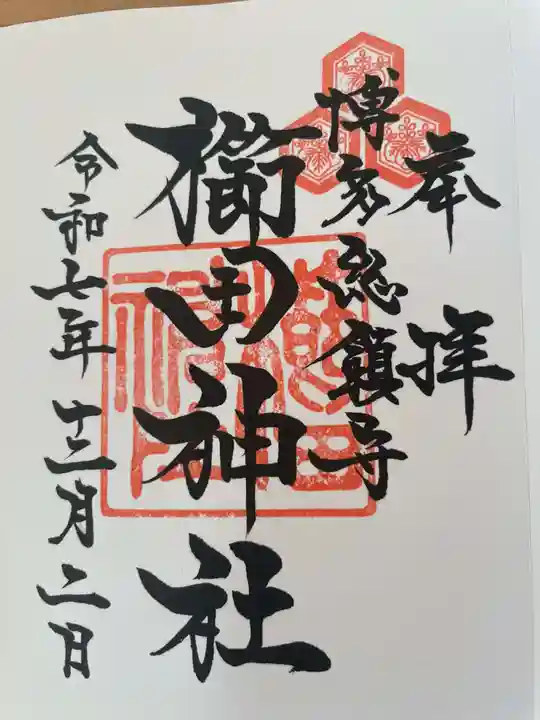 奉拝
博多総鎮守
櫛田神社
令和七年十二月二日